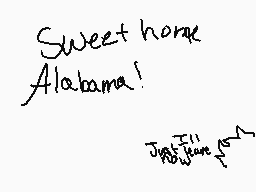 Sweet home
Alabama!
I'll
Just leave
now